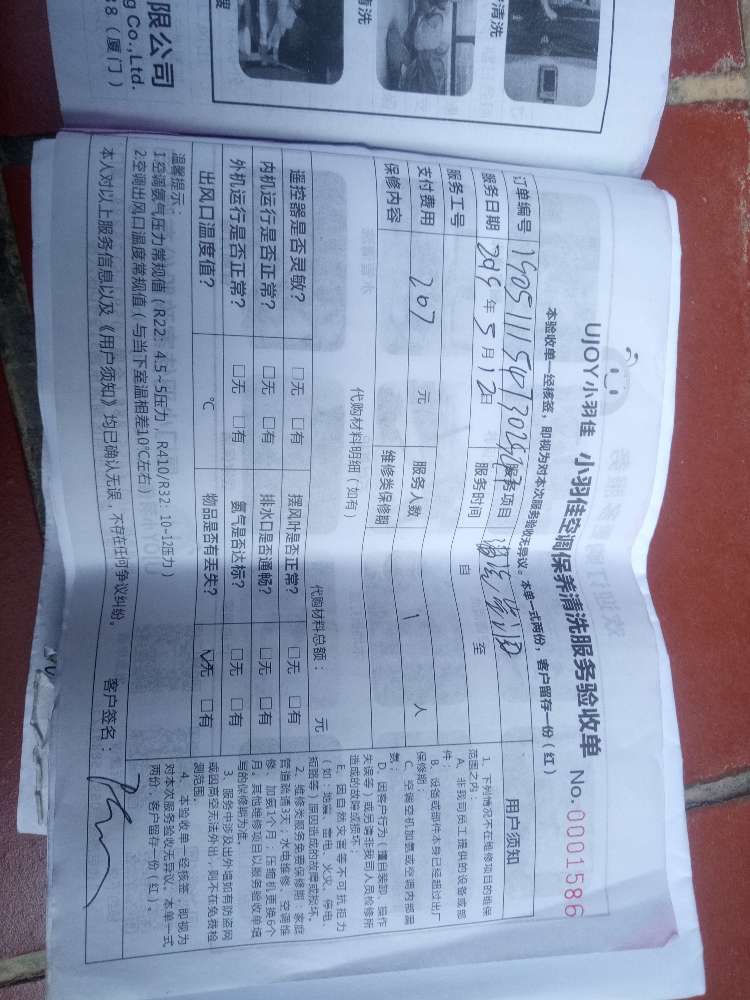 限公司
g Co.,Ltd.
38（厦门）
清洗
洗
UJOY小羽佳 小羽佳空调保养清洗服务验收单 No.0001586
本验收单一经核签，即视为对本次服务验收无异议。本单一式两份，客户留存一份（红）
订单编号
服务项目
服务日期 2019年5月12日 服务时间 自 至
服务工号
支付费用 207 元 服务人数 1 人
保修内容 维修类保修期
代购材料明细（如有） 代购材料总额： 元
遥控器是否灵敏？ □无 □有 摆风叶是否正常？ □无 □有
内机运行是否正常？ □无 □有 排水口是否通畅？ □无 □有
外机运行是否正常？ □无 □有 氨气是否达标？ □无 □有
出风口温度值？ ℃ 物品是否有丢失？ ☑无 □有
温馨提示：
1.空调氨气压力常规值（R22：4.5~5压力，R410/R32：10-12压力）
2.空调出风口温度常规值（与当下室温相差10℃左右）
本人对以上服务信息以及《用户须知》均已确认无误，不存在任何争议纠纷。 客户签名：
用户须知
1、下列情况不在维修项目的维保
范围之内：
A、非我司员工提供的设备或部
件；
B、设备或部件本身已经超过出厂
保修期
C、空调空机加氨或空调内部漏
氨；
D、因客户行为（擅自装卸、操作
失误等）或另请非我司人员检修所
造成的故障或损坏；
E、因自然灾害等不可抗拒力
（如：地震、雷电、火灾、停电、
短路等）原因造成的故障或损坏。
2、维修类服务免费保修期：家庭
管道疏通3天；水电维修、空调维
修、加氨1个月；压缩机更换6个
月。其他维修项目以服务验收单填
写的保修期为准。
3、服务中涉及出外墙如有防盗网
或因高空无法外出，则不在免费检
测范围。
4、本验收单一经核签，即视为
对本次服务验收无异议。本单一式
两份，客户留存一份（红）。